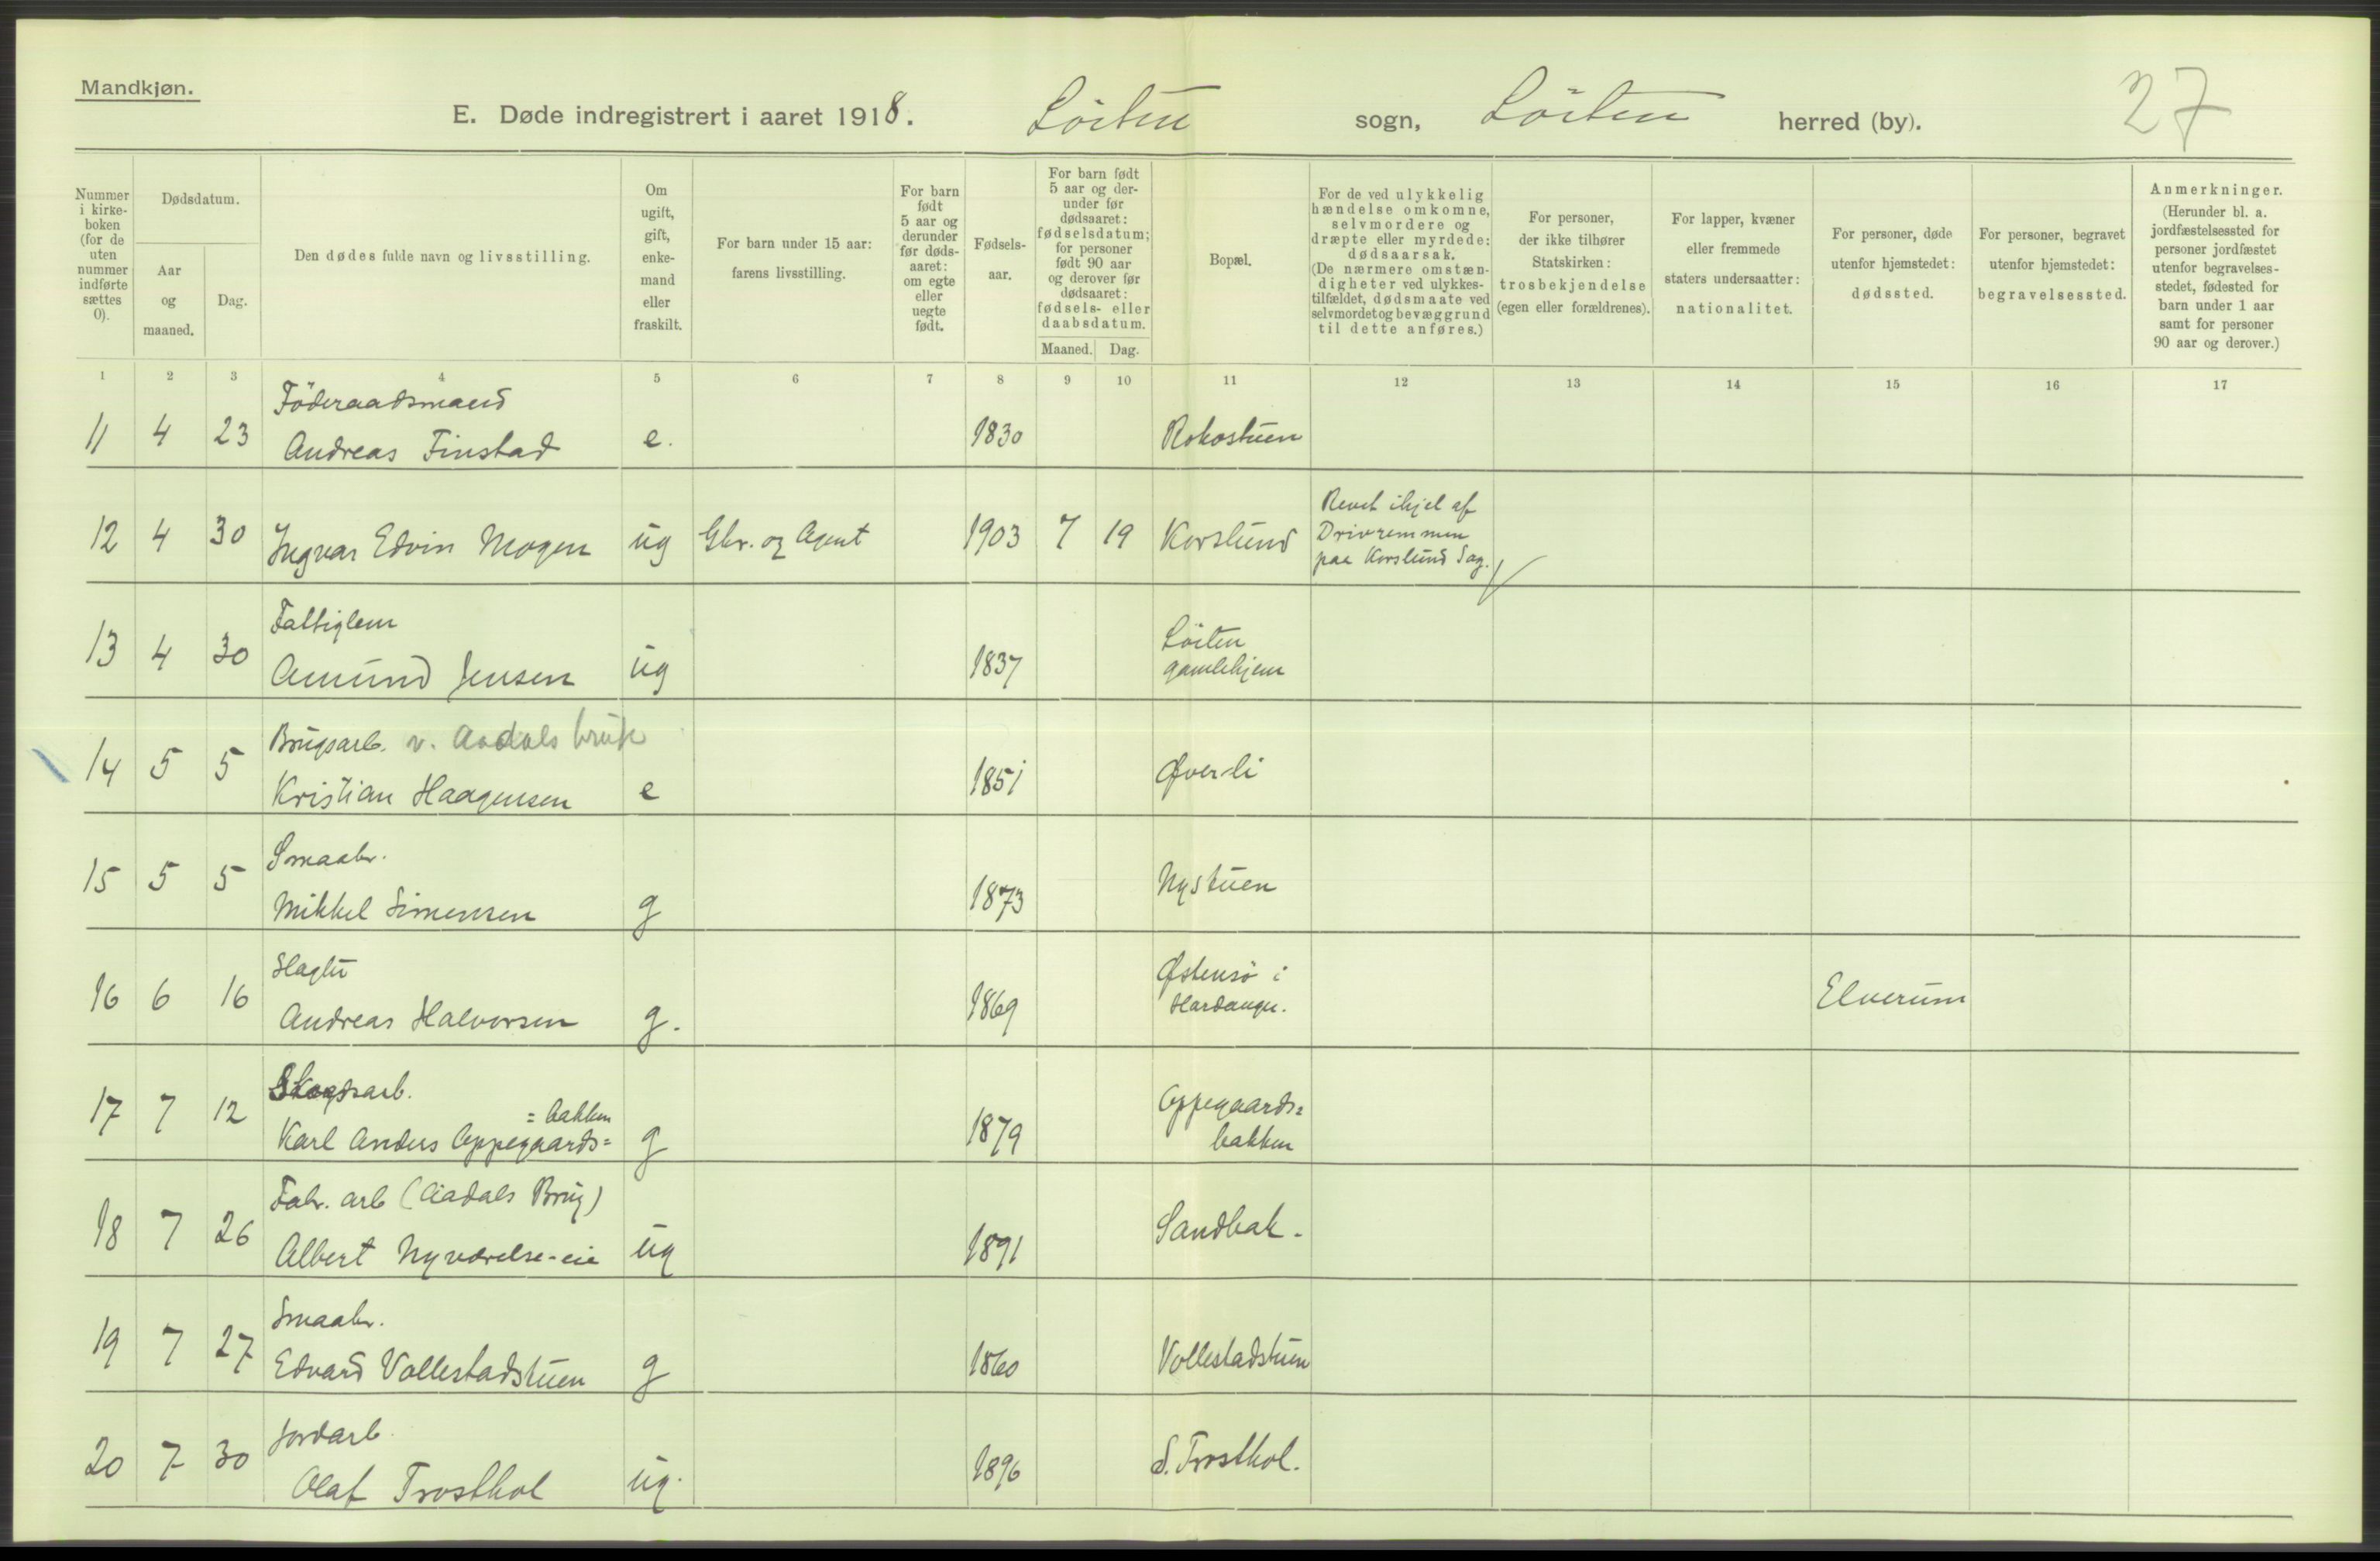 Mandkjøn.
E. Døde indregistrert i aaret 1918. Löiten sogn, Löiten herred (by). 27
Nummer i kirke-boken (for de uten nummer indførte sættes 0).
Dødsdatum.
Aar og maaned.
Dag.
Den dødes fulde navn og livsstilling.
Om ugift, gift, enke-mand eller fraskilt.
For barn under 15 aar: farens livsstilling.
For barn født 5 aar og derunder før døds-aaret: om egte eller uegte født.
Fødsels-aar.
For barn født 5 aar og der-under før dødsaaret: fødselsdatum; for personer født 90 aar og derover før dødsaaret: fødsels- eller daabsdatum.
Maaned. Dag.
Bopæl.
For de ved ulykkelig hændelse omkomne, selvmordere og dræpte eller myrdede: dødsaarsak. (De nærmere omstæn-digheter ved ulykkes-tilfældet, dødsmaate ved selvmordet og bevæggrund til dette anføres.)
For personer, der ikke tilhører Statskirken: trosbekjendelse (egen eller forældrenes).
For lapper, kvæner eller fremmede staters undersaatter: nationalitet.
For personer, døde utenfor hjemstedet: dødssted.
For personer, begravet utenfor hjemstedet: begravelsessted.
Anmerkninger. (Herunder bl. a. jordfæstelsessted for personer jordfæstet utenfor begravelses-stedet, fødested for barn under 1 aar samt for personer 90 aar og derover.)
1 2 3 4 5 6 7 8 9 10 11 12 13 14 15 16 17
Föderaadsmand
11 4 23 Andreas Finstad e. 1830 Rokostuen
Revet ihjel af
12 4 30 Ingvar Edvin Mogen ug Gbr. og Agent 1903 7 19 Korslund Drivremmen
paa Korslund Sag.
Fattiglem Löiten
13 4 30 Amund Jensen ug 1837 gamlehjem
Brugsarb. v. Aadals bruk
14 5 5 Kristian Haagensen e 1851 Øverli
Smaabr.
15 5 5 Mikkel Simensen g 1873 Nystuen
Slagter Østensö i
16 6 16 Andreas Halvorsen g. 1869 Hardanger. Elverum
Skogsarb. Oppegaards=
= bakken
17 7 12 Karl Anders Oppegaards= g 1879 bakken
Fabr. arb (Aadals Brug)
18 7 26 Albert Nyværelse-eie ug 1891 Sandbak.
Smaabr.
19 7 27 Edvard Vollestadstuen g 1860 Vollestadstuen
Jordarb.
20 7 30 Olaf Trosthol ug. 1896 S. Trosthol.